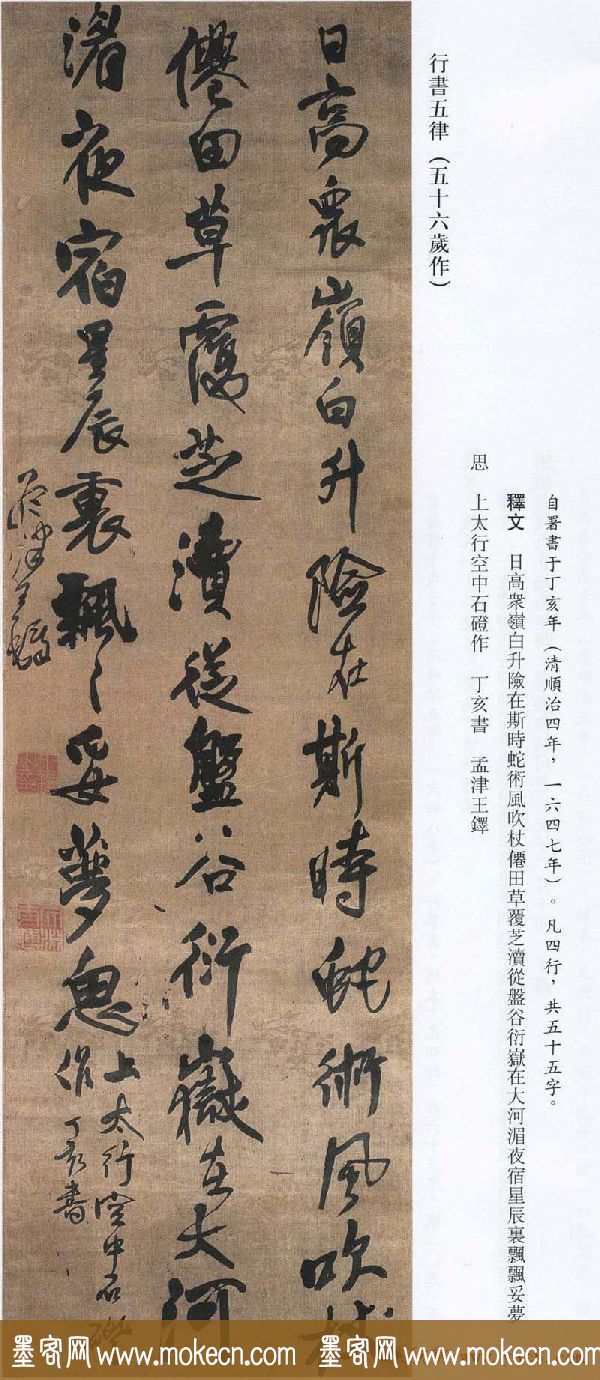 行書五律（五十六歲作）
自署書于丁亥年（清順治四年，一六四七年）。凡四行，共五十五字。
釋文　日高衆嶺白升險在斯時蛇術風吹杖僊田草覆芝瀆從盤谷衍嶽在大河湄夜宿星辰裏飄飄妥夢
思　上太行空中石磴作　丁亥書　孟津王鐸
日高衆嶺白升險在斯時蛇術風吹杖
僊田草覆芝瀆從盤谷衍嶽在大河
湄夜宿星辰裏飄〻妥夢思
上太行空中石磴
作丁亥書
孟津王鐸
墨客网 www.mokecn.com 墨客网 www.mokecn.com 墨客网 www.mokecn.com